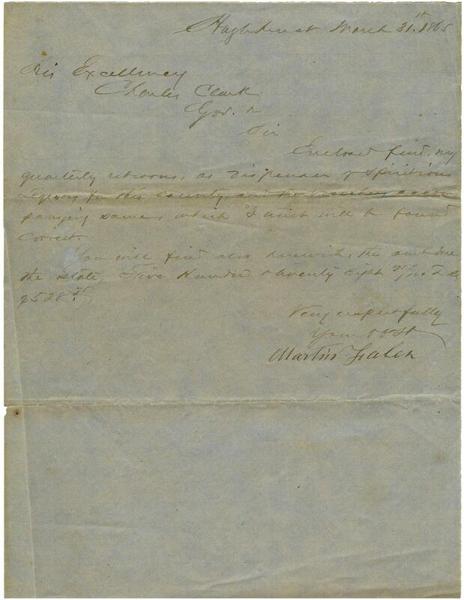 Hazlehurst March 31st 1865
His Excellency
Charles Clark
Gov. &
Sir
Enclosed find, my
quarterly returns, as Dispenser of Spiritous
Liquors for this County, and the vouchers accom
panying same, which I trust will be found
Correct.
You will find also herewith, the amt due
the State, Five Hundred & twenty eight
$528
Very respectfully
Your obt St
Martin